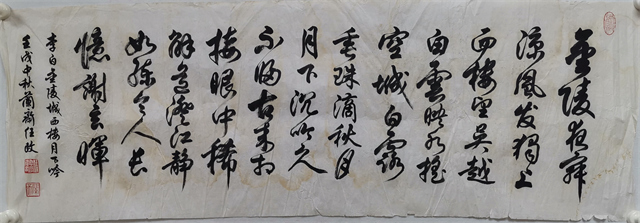 金陵夜寂
凉風发獨上
西楼望吴越
白雲映水摇
空城白露
垂珠滴秋月
月下沉吟久
不归古来相
接眼中稀
解道澄江静
如練令人長
憶謝玄暉
李白金陵城西楼月下吟
壬戌中秋蘭齋任政